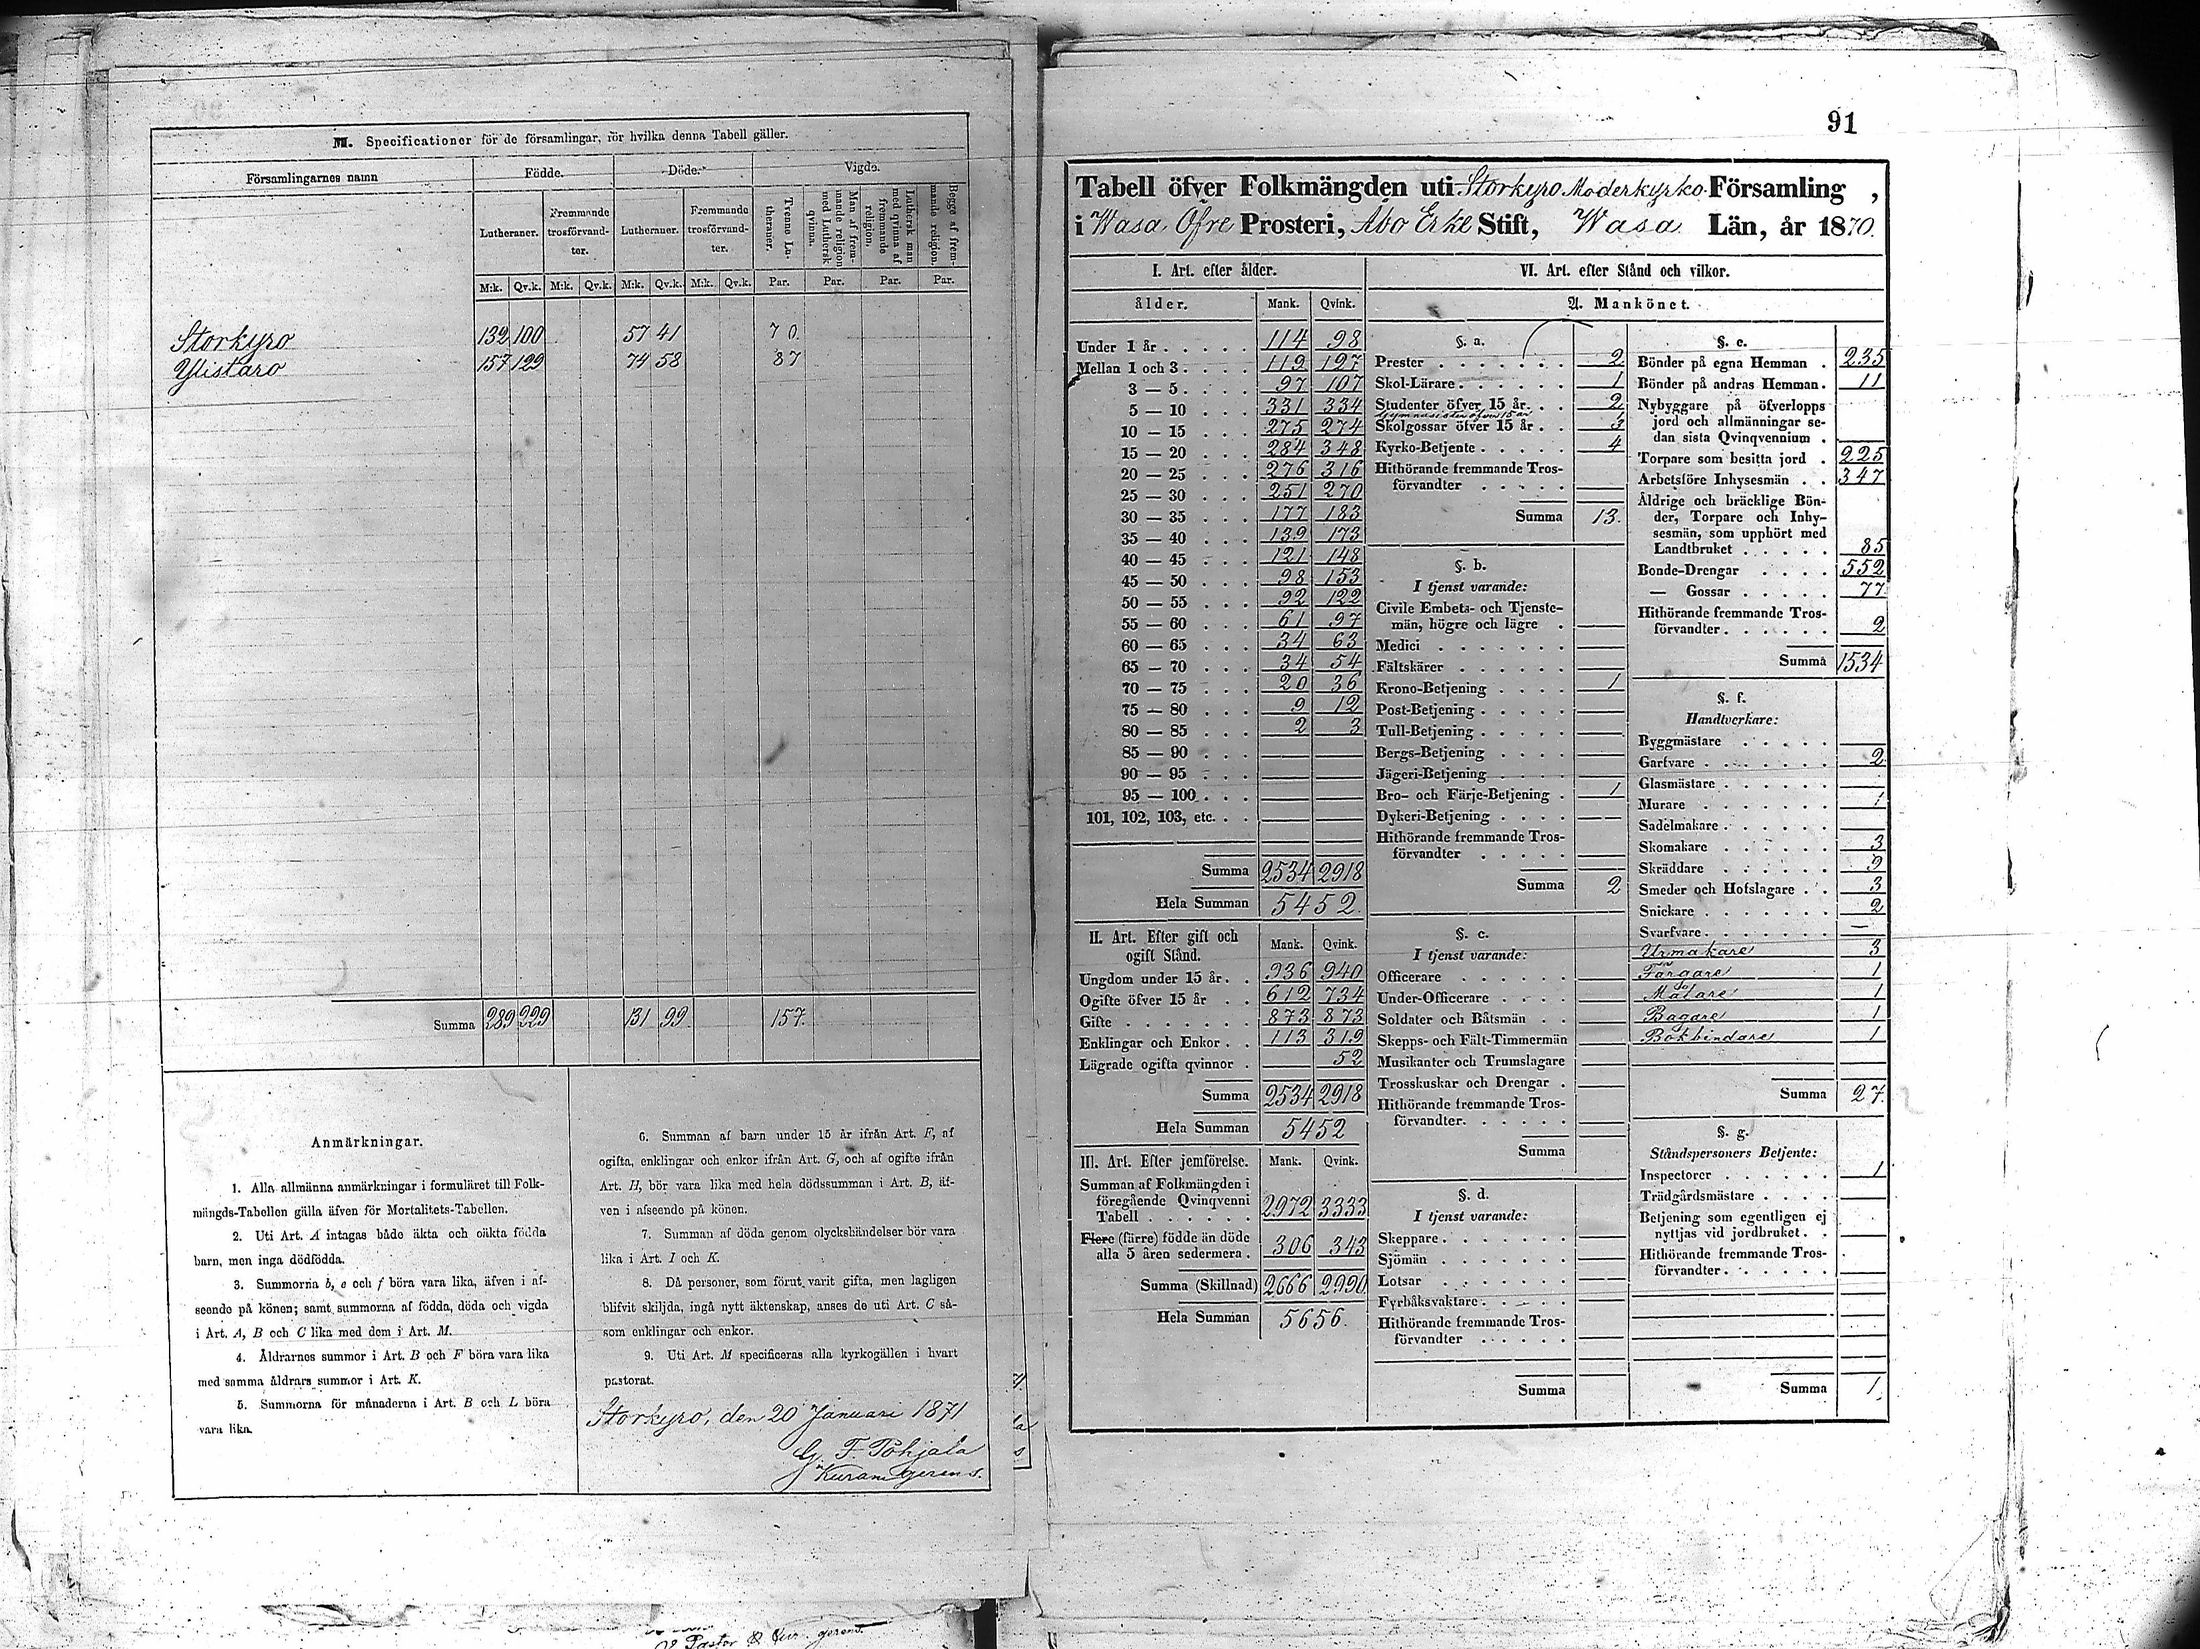 M. Specificationer för de församlingar, för hvilka denna Tabell gäller.
Församlingarnes namn
Födde.
Döde.
Vigde.
Lutheraner.
Fremmande trosförvandter.
Lutheraner.
Fremmande trosförvandter.
Tvenne Lutheraner.
Man af fremmande religion med Luthersk qvinna.
Luthersk man med qvinna af fremmande religion.
Begge af fremmande religion.
M:k. Qv.k. M:k. Qv.k. M:k. Qv.k. M:k. Qv.k. Par. Par. Par. Par.
Storkyro 132 100 57 41 70
Ylistaro 157 129 74 58 87
Summa 289 229 131 99 157.
Anmärkningar.
1. Alla allmänna anmärkningar i formuläret till Folk-
mängds-Tabellen gälla äfven för Mortalitets-Tabellen.
2. Uti Art. A intagas både äkta och oäkta födda
barn, men inga dödfödda.
3. Summorna b, e och f böra vara lika, äfven i af-
seende på könen; samt summorna af födda, döda och vigda
i Art. A, B och C lika med dem i Art. M.
4. Åldrarnes summor i Art. B och F böra vara lika
med samma åldrars summor i Art. K.
5. Summorna för månaderna i Art. B och L böra
vara lika.
6. Summan af barn under 15 år ifrån Art. F, af
ogifta, enklingar och enkor ifrån Art. G, och af ogifte ifrån
Art. H, bör vara lika med hela dödssumman i Art. B, äf-
ven i afseende på könen.
7. Summan af döda genom olyckshändelser bör vara
lika i Art. I och K.
8. Då personer, som förut varit gifta, men lagligen
blifvit skiljda, ingå nytt äktenskap, anses de uti Art. C så-
som enklingar och enkor.
9. Uti Art. M specificeras alla kyrkogällen i hvart
pastorat.
Storkyro, den 20 Januari 1871
G. F. Pohjala
91
Tabell öfver Folkmängden uti Storkyro Moderkyrko Församling,
i Wasa Öfre Prosteri, Åbo Erke Stift, Wasa Län, år 1870.
I. Art. efter ålder.
ålder. Mank. Qvink.
Under 1 år 114 98
Mellan 1 och 3 119 127
3 — 5 97 107
5 — 10 331 334
10 — 15 275 274
15 — 20 284 348
20 — 25 276 316
25 — 30 251 270
30 — 35 177 183
35 — 40 139 173
40 — 45 121 148
45 — 50 98 153
50 — 55 92 122
55 — 60 61 97
60 — 65 34 63
65 — 70 34 54
70 — 75 20 36
75 — 80 9 12
80 — 85 2 3
85 — 90
90 — 95
95 — 100
101, 102, 103, etc.
Summa 2534 2918
Hela Summan 5452.
II. Art. Efter gift och
ogift Stånd. Mank. Qvink.
Ungdom under 15 år 936 940
Ogifte öfver 15 år 612 734
Gifte 873 873
Enklingar och Enkor 113 319
Lägrade ogifta qvinnor 52
Summa 2534 2918
Hela Summan 5452
III. Art. Efter jemförelse. Mank. Qvink.
Summan af Folkmängden i
föregående Qvinqvenni
Tabell 2972 3333
Flere (färre) födde än döde
alla 5 åren sedermera 306 343
Summa (Skillnad) 2666 2990
Hela Summan 5656.
VI. Art. efter Stånd och vilkor.
A. Mankönet.
§. a.
Prester 2
Skol-Lärare 1
Studenter öfver 15 år 2
Gymnasister öfver 15 år 1
Skolgossar öfver 15 år 3
Kyrko-Betjente 4
Hithörande fremmande Tros-
förvandter
Summa 13.
§. b.
I tjenst varande:
Civile Embets- och Tjenste-
män, högre och lägre
Medici
Fältskärer
Krono-Betjening 1
Post-Betjening
Tull-Betjening
Bergs-Betjening
Jägeri-Betjening
Bro- och Färje-Betjening 1
Dykeri-Betjening
Hithörande fremmande Tros-
förvandter
Summa 2
§. c.
I tjenst varande:
Officerare
Under-Officerare
Soldater och Båtsmän
Skepps- och Fält-Timmermän
Musikanter och Trumslagare
Trosskuskar och Drengar
Hithörande fremmande Tros-
förvandter
Summa
§. d.
I tjenst varande:
Skeppare
Sjömän
Lotsar
Fyrbåksvaktare
Hithörande fremmande Tros-
förvandter
Summa
§. e.
Bönder på egna Hemman 235
Bönder på andras Hemman 11
Nybyggare på öfverlopps
jord och allmänningar se-
dan sista Qvinqvennium
Torpare som besitta jord 225
Arbetsföre Inhysesmän 347
Åldrige och bräcklige Bön-
der, Torpare och Inhy-
sesmän, som upphört med
Landtbruket 85
Bonde-Drengar 552
— Gossar 77
Hithörande fremmande Tros-
förvandter 2
Summa 1534
§. f.
Handtverkare:
Byggmästare
Garfvare 2
Glasmästare
Murare 1
Sadelmakare
Skomakare 3
Skräddare 9
Smeder och Hofslagare 3
Snickare 2
Svarfvare —
Urmakare 3
Färgare 1
Målare 1
Bagare 1
Bokbindare 1
Summa 27.
§. g.
Ståndspersoners Betjente:
Inspectorer 1
Trädgårdsmästare
Betjening som egentligen ej
nyttjas vid jordbruket
Hithörande fremmande Tros-
förvandter
Summa 1.